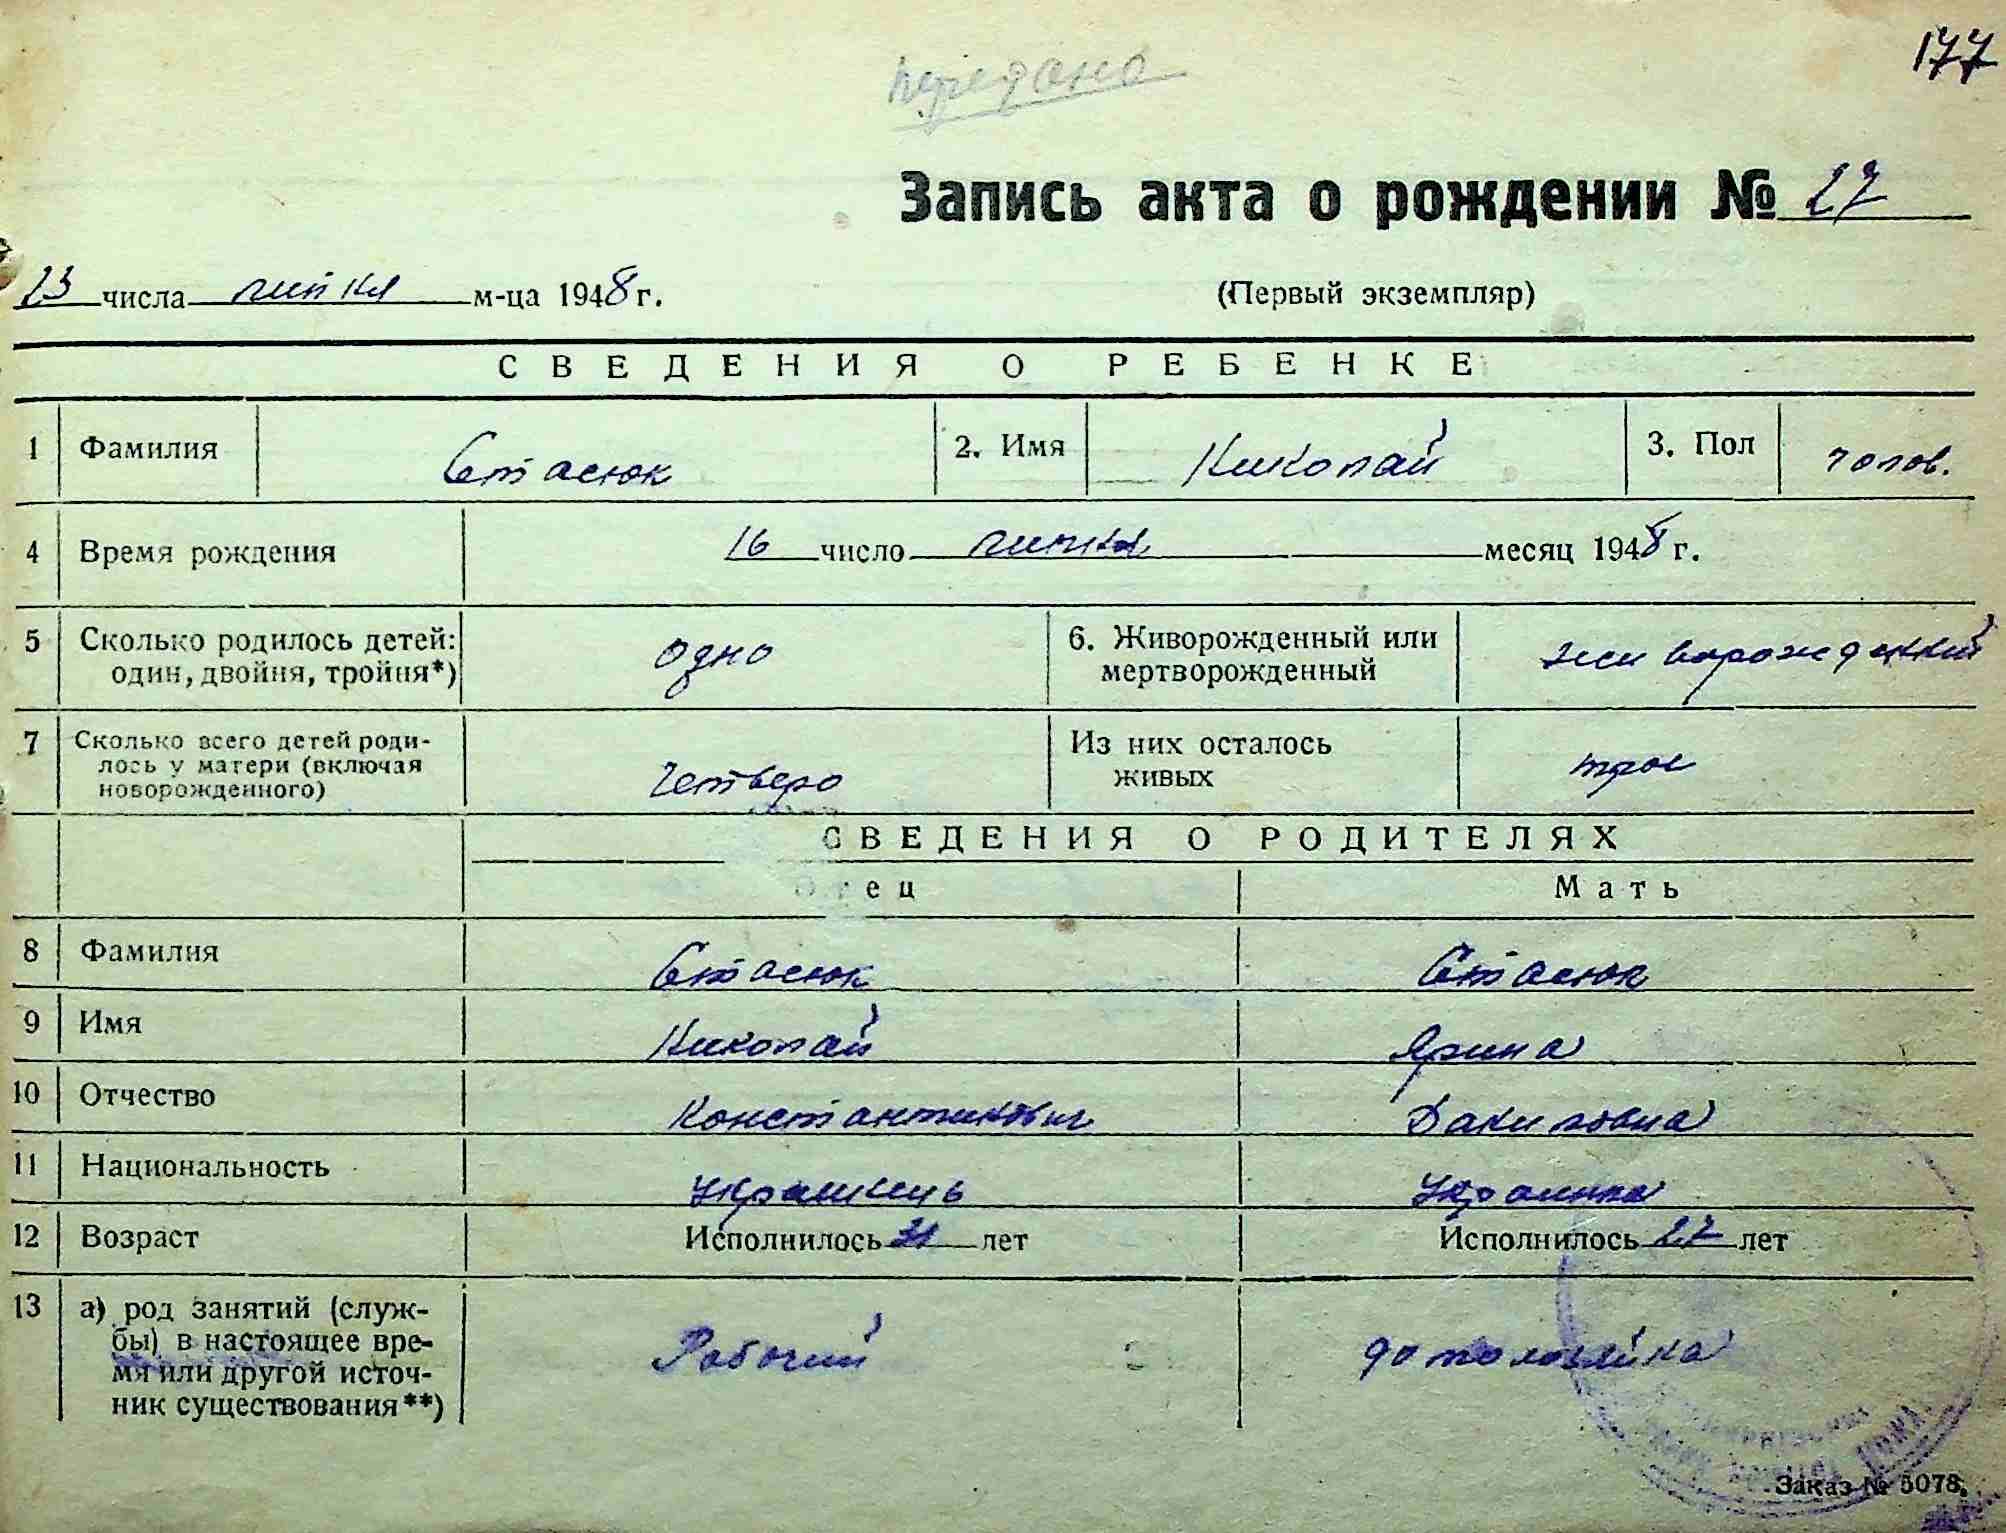 177
передано
Запись акта о рождении № 27
23 числа липня м-ца 1948 г. (Первый экземпляр)
СВЕДЕНИЯ О РЕБЕНКЕ
1 Фамилия Стасюк 2. Имя Николай 3. Пол чолов.
4 Время рождения 16 число липня месяц 1948 г.
5 Сколько родилось детей: один, двойня, тройня*) одно 6. Живорожденный или мертворожденный живорожденний
7 Сколько всего детей родилось у матери (включая новорожденного) четверо Из них осталось живых трое
СВЕДЕНИЯ О РОДИТЕЛЯХ
Отец Мать
8 Фамилия Стасюк Стасюк
9 Имя Николай Ярина
10 Отчество Константинович Даниловна
11 Национальность українець українка
12 Возраст Исполнилось 31 лет Исполнилось 27 лет
13 а) род занятий (служ-
бы) в настоящее вре-
мя или другой источ-
ник существования**)
Рабочий
Заказ № 5078.